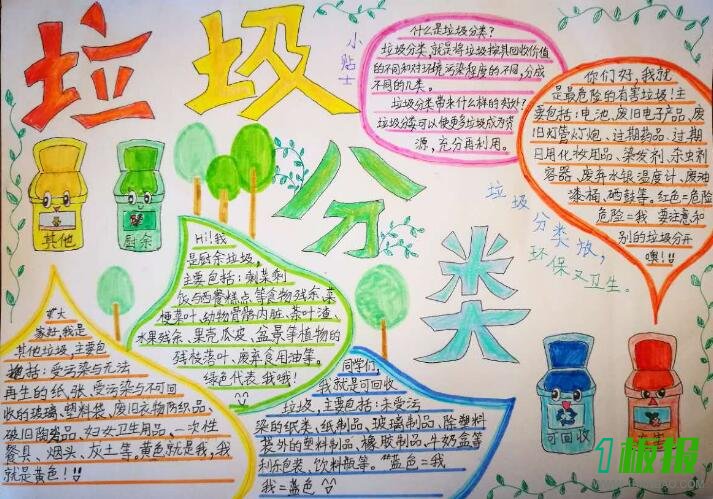 垃圾
分类
小贴士
什么是垃圾分类?
垃圾分类,就是将垃圾按其回收价值
的不同和对环境污染程度的不同,分成
不同的几类。
垃圾分类带来什么样的好处?
垃圾分类可以使更多垃圾成为资
源,充分再利用。
你们好,我就
是最危险的有害垃圾!主
要包括:电池、废旧电子产品、废
旧灯管灯炮、过期药品、过期
日用化妆用品、染发剂、杀虫剂
容器、废弃水银温度计、废油
漆桶、硒鼓等。红色=危险
危险=我 要注意和
别的垃圾分开
噢!!
垃圾
分类放,
环保又卫生。
其他
厨余
Hi!我
是厨余垃圾,
主要包括:剩菜剩
饭与西餐糕点等食物残余、菜
梗菜叶、动物骨骼内脏、茶叶渣、
水果残余、果壳瓜皮、盆景等植物的
残枝落叶、废弃食用油等。
绿色代表我哦!
大
家好,我是
其他垃圾,主要包
括:受污染与无法
再生的纸张、受污染与不可回
收的玻璃、塑料袋、废旧衣物纺织品、
破旧陶瓷品、妇女卫生用品、一次性
餐具、烟头、灰土等。黄色就是我,我
就是黄色!!
同学们,
我就是可回收
垃圾,主要包括:未受污
染的纸类、纸制品、玻璃制品、除塑料
袋外的塑料制品、橡胶制品、牛奶盒等
利乐包装、饮料瓶等。蓝色=我
我=蓝色
可回收
板报